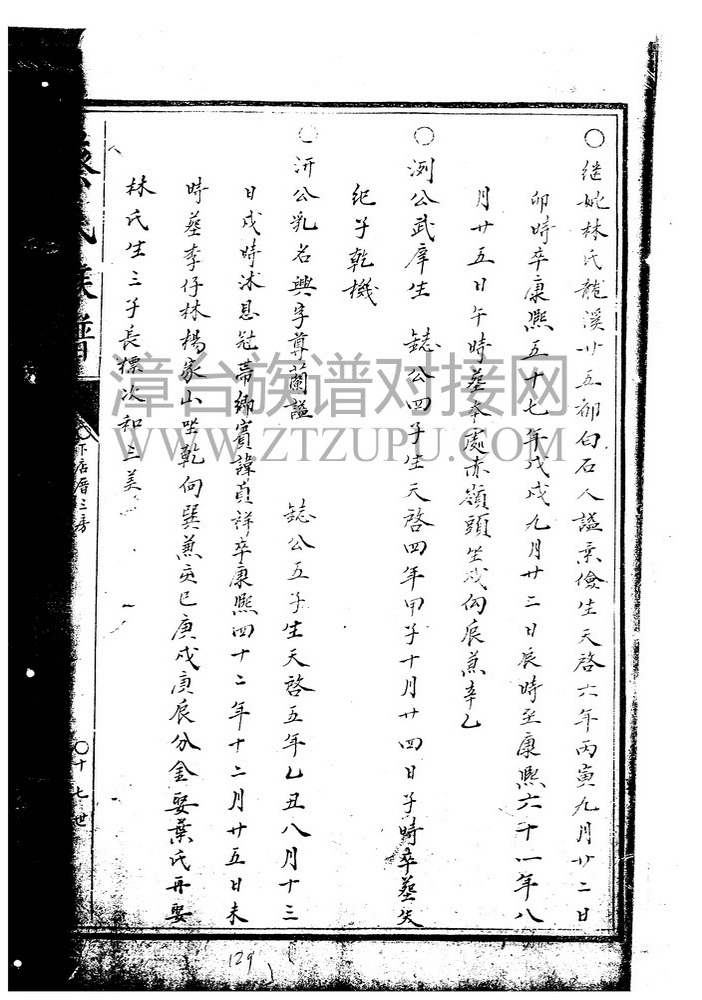 〇继妣林氏龍溪廿五都白石人謚京儉生天啓六年丙寅九月廿二日
卯時卒康熙五十七年戊戌九月廿二日辰時至康熙六十一年八
月廿五日午時葬本處赤嶺頭坐戌向辰兼辛乙
〇洌公武庠生 鋕公四子生天啓四年甲子十月廿四日子時卒葬失
紀子乾機
〇汧公乳名興字尊蘭謚 鋕公五子生天啓五年乙丑八月十三
日戌時沐恩冠帶鄉賓諱貞祥卒康熙四十二年十二月廿五日未
時葬李仔林楊家山坐乾向巽兼亥巳庚戌庚辰分金娶葉氏再娶
林氏生三子長標次和三美
氏族譜
〇下店厝三房
〇十七世
129
漳台族谱对接网
WWW.ZTZUPU.COM